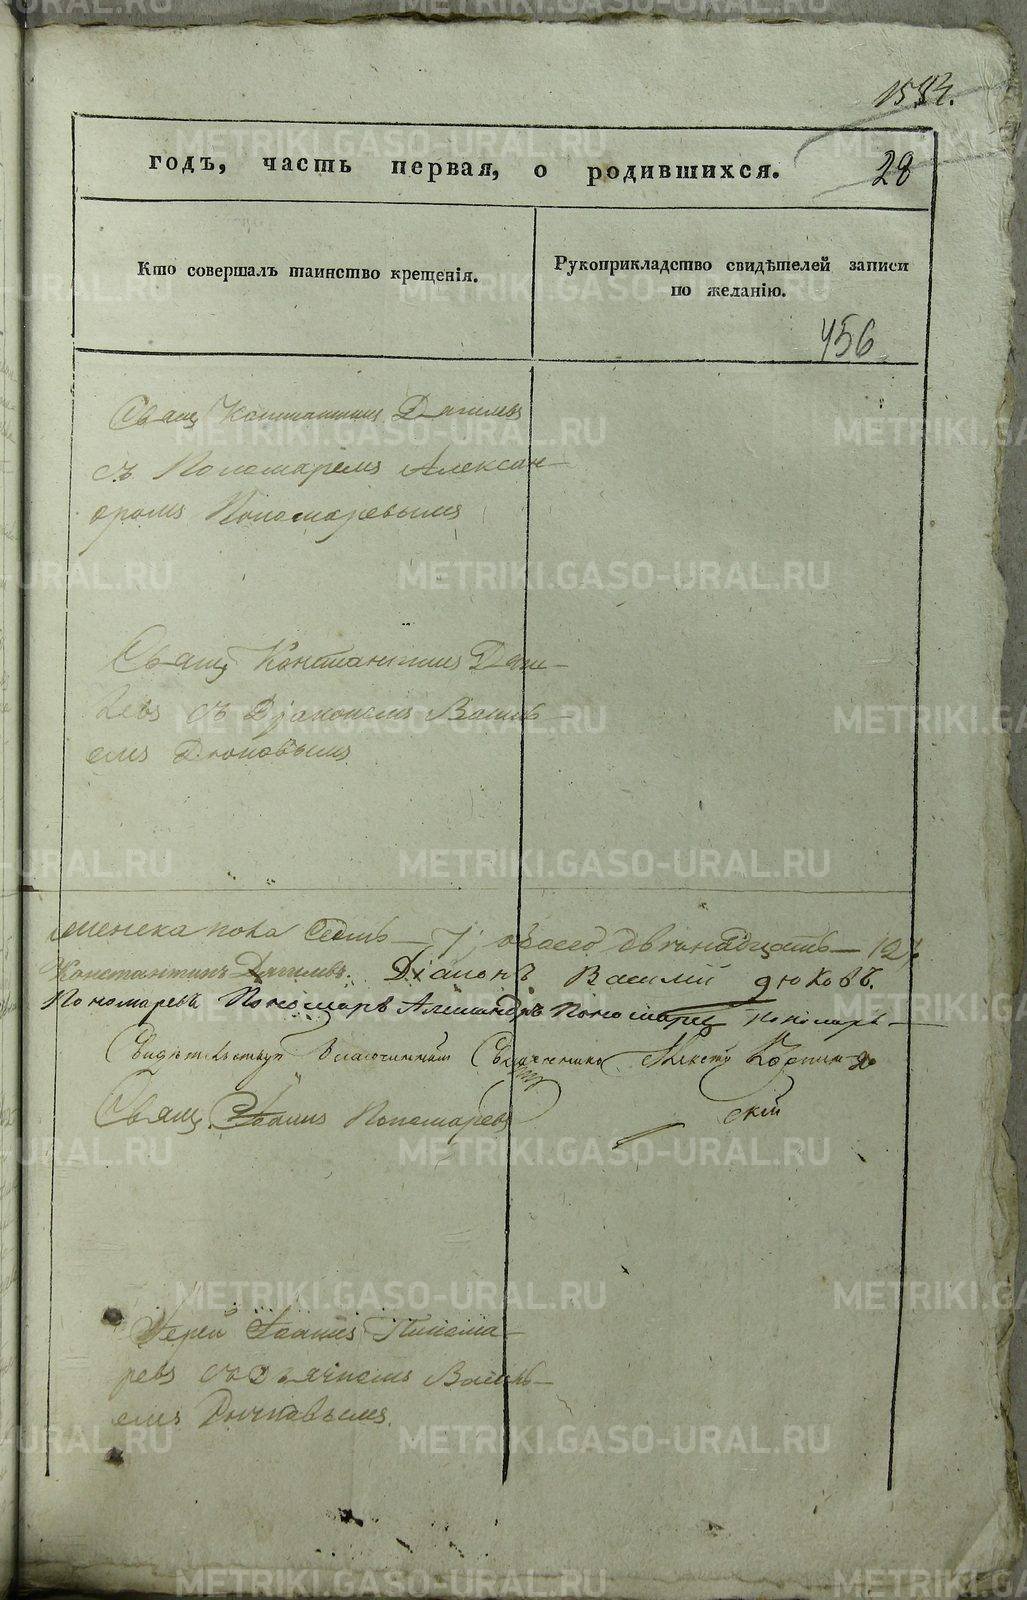 28
годъ, часть первая, о родившихся.
Кто совершалъ таинство крещенія.
Рукоприкладство свидѣтелей записи
по желанію.
456
Свящ Константинъ Дягилевъ
съ Пономаремъ Алексан-
дромъ Пономаревымъ
Свящ Константинъ Дяги-
левъ съ Діакономъ Василь-
емъ Дюковымъ
женска пола Седмь 7, обоего двенадцать 12,
Константинъ Дягилевъ. Діаконъ Василий дюковъ.
Пономаревъ Пономарь Александръ Пономаревъ
Свидѣтельствуя Благочинный Священникъ
скій
Свящ. Іоаннъ Пономаревъ
Іерей Іоаннъ Понома-
ревъ Василь-
емъ
METRIKI.GASO-URAL.RU